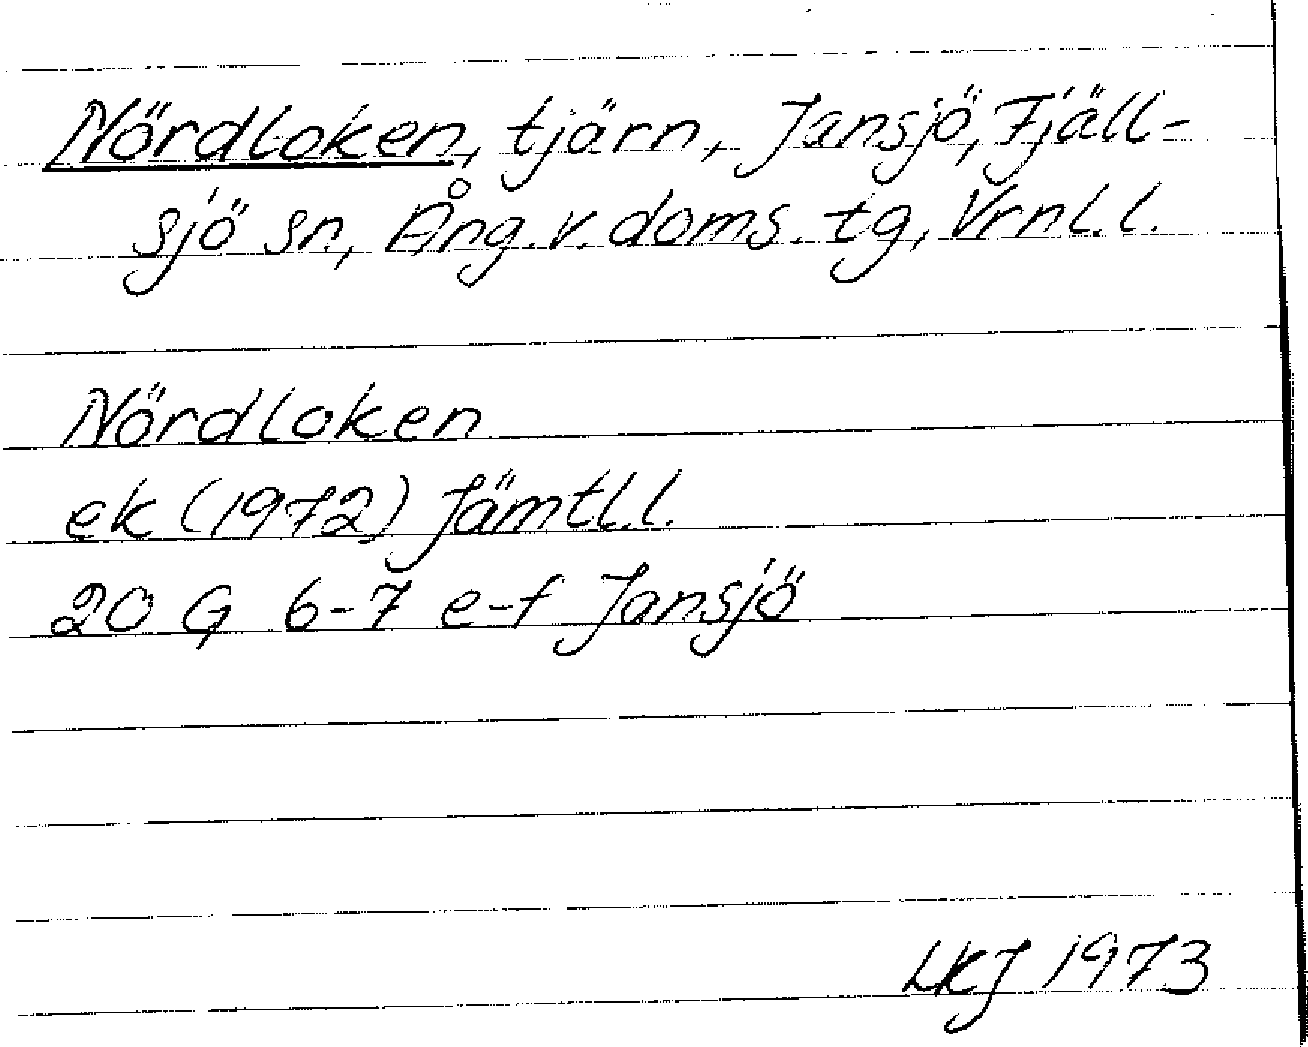 Nördloken, tjärn, Jansjö, Fjäll-
sjö sn, Ång. v. doms. tg, Vrnl. l.
Nördloken
ek (1972) Jämtl. l.
20 G 6-7 e-f Jansjö
LKJ 1973